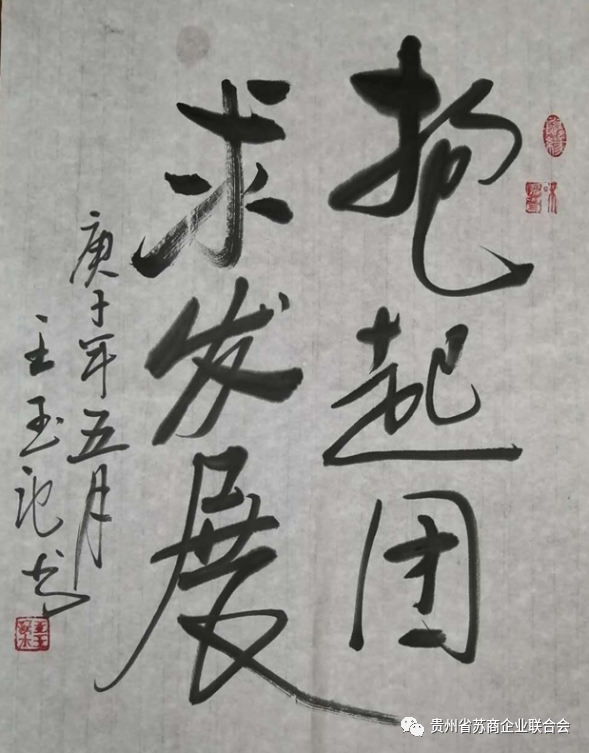 抱起团
求发展
庚子年五月
王玉记书
贵州省苏商企业联合会